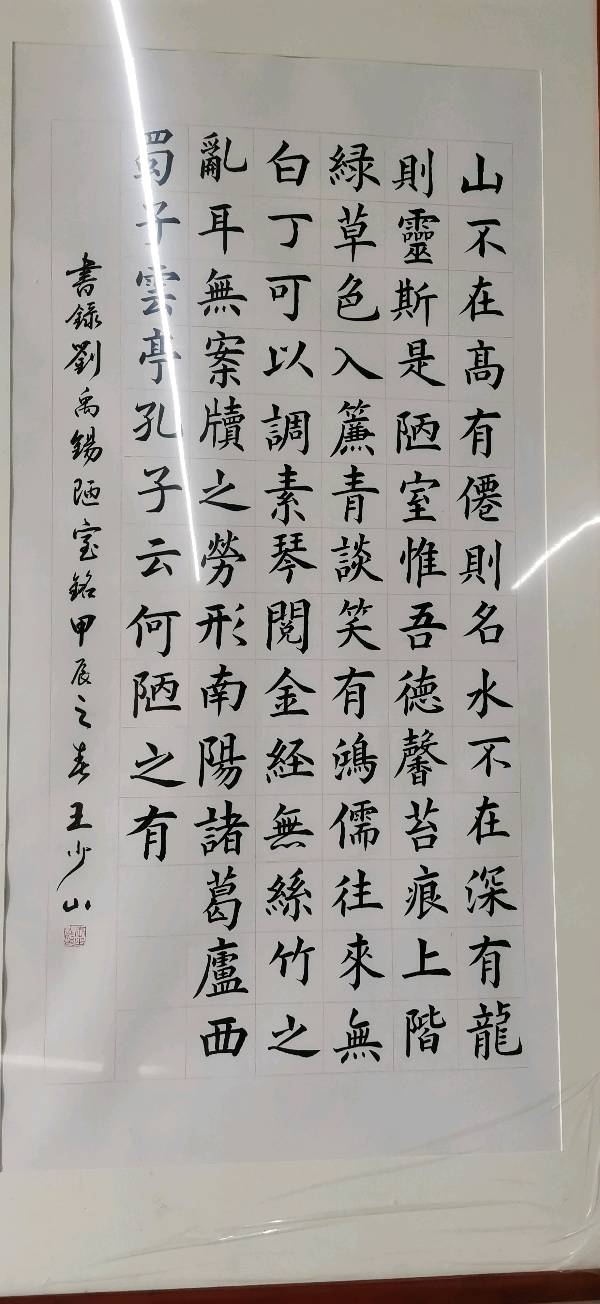 山不在高有僊則名水不在深有龍
則靈斯是陋室惟吾德馨苔痕上階
緑草色入簾青談笑有鴻儒往來無
白丁可以調素琴閱金経無絲竹之
亂耳無案牘之勞形南陽諸葛廬西
蜀子雲亭孔子云何陋之有
書録劉禹錫陋室銘甲辰之春王少山